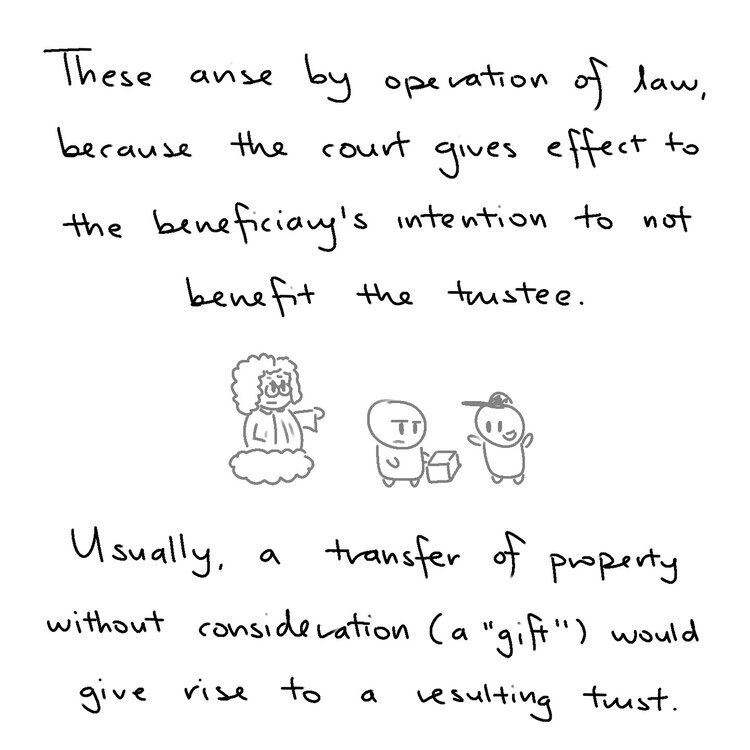 These arise by operation of law,
because the court gives effect to
the beneficiary's intention to not
benefit the trustee.
Usually, a transfer of property
without consideration (a "gift") would
give rise to a resulting trust.